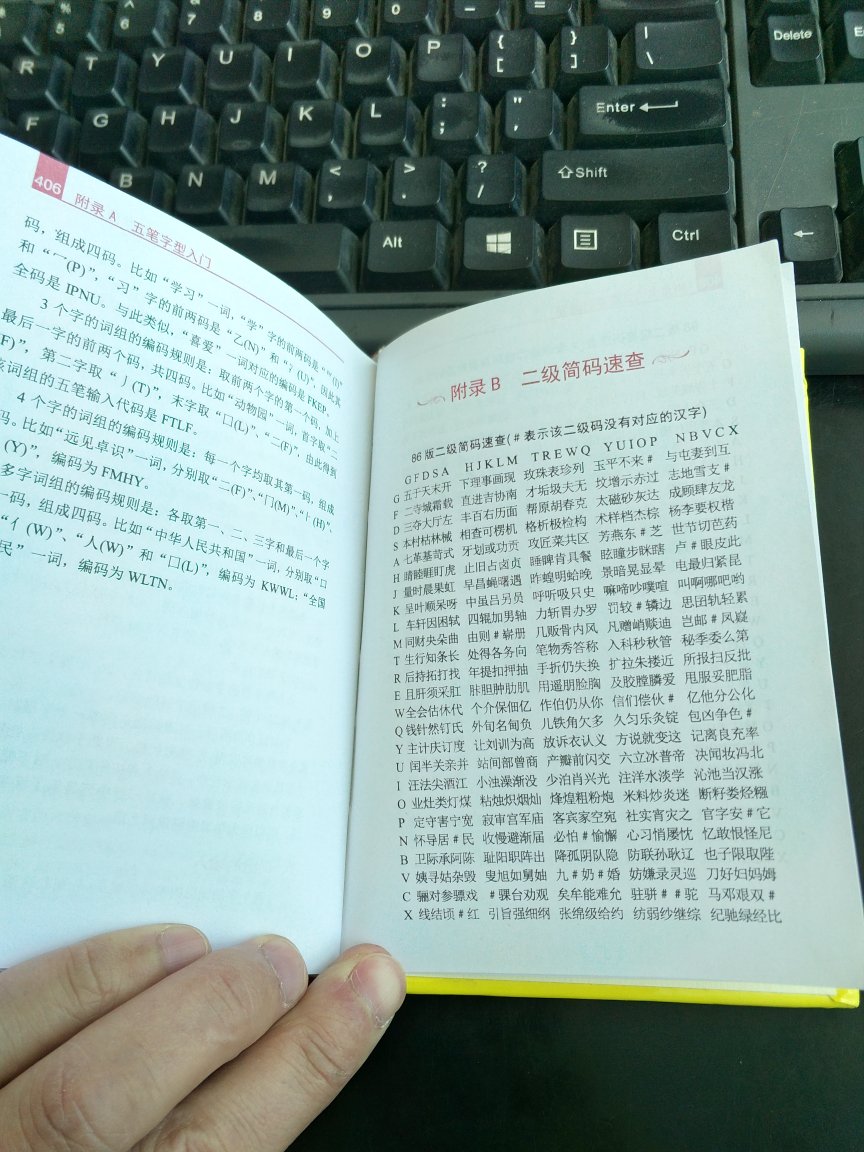 5
6
7
8
9
0
R
T
Y
U
I
O
P
{ [
} ]
| \
Delete
F
G
H
J
K
L
: ;
" '
Enter
B
N
M
<
>
? /
Shift
Alt
Ctrl
406
附录 A 五笔字型入门
码，组成四码。比如“学习”一词，“学”字的前两码是
和“冖(P)”，“习”字的前两码是“乙(N)”和“冫(U)”，因此其
全码是 IPNU。与此类似，“喜爱”一词对应的编码是 FKEP。
3 个字的词组的编码规则是：取前两个字的第一个码，加上
最后一字的前两个码，共四码。比如“动物园”一词，首字取“二
F)”，第二字取“丿(T)”，末字取“囗(L)”、“二(F)”，由此得到
该词组的五笔输入代码是 FTLF。
4 个字的词组的编码规则是：每一个字均取其第一码，组成
码。比如“远见卓识”一词，分别取“二(F)”,“冂(M)”,“⺊(H)”、
(Y)”，编码为 FMHY。
多字词组的编码规则是：各取第一、二、三字和最后一个字
一码，组成四码。比如“中华人民共和国”一词，分别取“口
“亻(W)”、“人(W)”和“囗(L)”，编码为 KWWL；“全国
民”一词，编码为 WLTN。
附录 B 二级简码速查
86 版二级简码速查(＃表示该二级码没有对应的汉字)
GFDSA HJKLM TREWQ YUIOP NBVCX
G 五于天末开 下理事画现 玫珠表珍列 玉平不来＃ 与屯妻到互
F 二寺城霜载 直进吉协南 才垢圾夫无 坟增示赤过 志地雪支＃
D 三夺大厅左 丰百右历面 帮原胡春克 太磁砂灰达 成顾肆友龙
S 本村枯林械 相查可楞机 格析极检构 术样档杰棕 杨李要权楷
A 七革基苛式 牙划或功贡 攻匠菜共区 芳燕东＃芝 世节切芭药
H 睛睦睚盯虎 止旧占卤贞 睡睥肯具餐 眩瞳步眯瞎 卢＃眼皮此
J 量时晨果虹 早昌蝇曙遇 昨蝗明蛤晚 景暗晃显晕 电最归紧昆
K 呈叶顺呆呀 中虽吕另员 呼听吸只史 嘛啼吵噗喧 叫啊哪吧哟
L 车轩因困轼 四辊加男轴 力斩胃办罗 罚较＃辚边 思囝轨轻累
M 同财央朵曲 由则＃崭册 几贩骨内风 凡赠峭赕迪 岂邮＃凤嶷
T 生行知条长 处得各务向 笔物秀答称 入科秒秋管 秘季委么第
R 后持拓打找 年提扣押抽 手折扔失换 扩拉朱搂近 所报扫反批
E 且肝须采肛 胩胆肿肋肌 用遥朋脸胸 及胶膛膦爱 甩服妥肥脂
W 全会估休代 个介保佃仙 作伯仍从你 信们偿伙＃ 亿他分公化
Q 钱针然钉氏 外旬名甸负 儿铁角欠多 久匀乐炙锭 包凶争色＃
Y 主计庆订度 让刘训为高 放诉衣认义 方说就变这 记离良充率
U 闰半关亲并 站间部曾商 产瓣前闪交 六立冰普帝 决闻妆冯北
I 汪法尖洒江 小浊澡渐没 少泊肖兴光 注洋水淡学 沁池当汉涨
O 业灶类灯煤 粘烛炽烟灿 烽煌粗粉炮 米料炒炎迷 断籽娄烃糨
P 定守害宁宽 寂审宫军庙 客宾家空宛 社实宵灾之 官字安＃它
N 怀导居＃民 收慢避渐届 必怕＃愉懈 心习悄屡忱 忆敢恨怪尼
B 卫际承阿陈 耻阳职阵出 降孤阴队隐 防联孙耿辽 也子限取陛
V 姨寻姑杂毁 叟旭如舅妯 九＃奶＃婚 妨嫌录灵巡 刀好妇妈姆
C 骊对参骠戏 ＃骒台劝观 矣牟能难允 驻骈＃＃驼 马邓艰双＃
X 线结顷＃红 引旨强细纲 张绵级给约 纺弱纱继综 纪驰绿经比